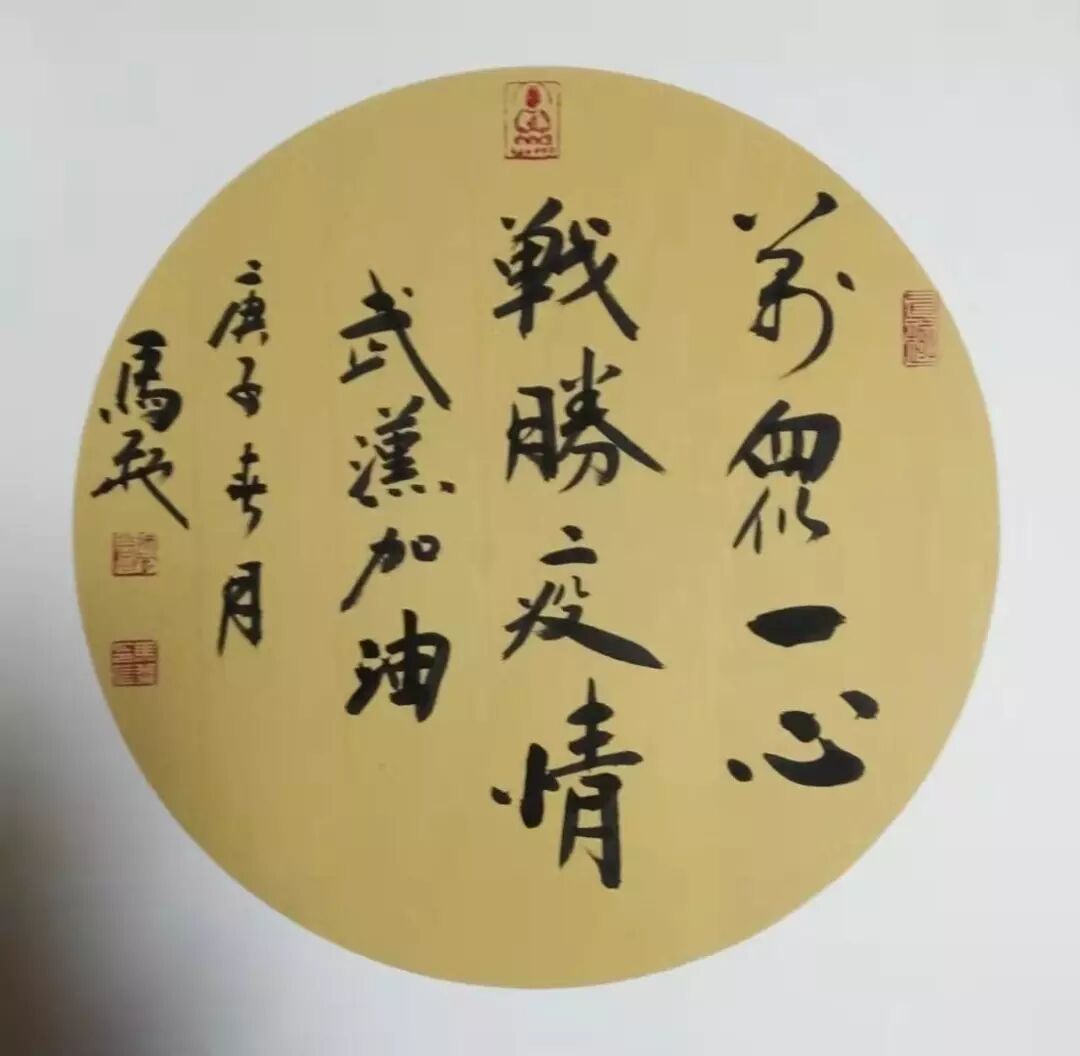 萬眾一心
戰勝疫情
武漢加油
庚子春月
馬